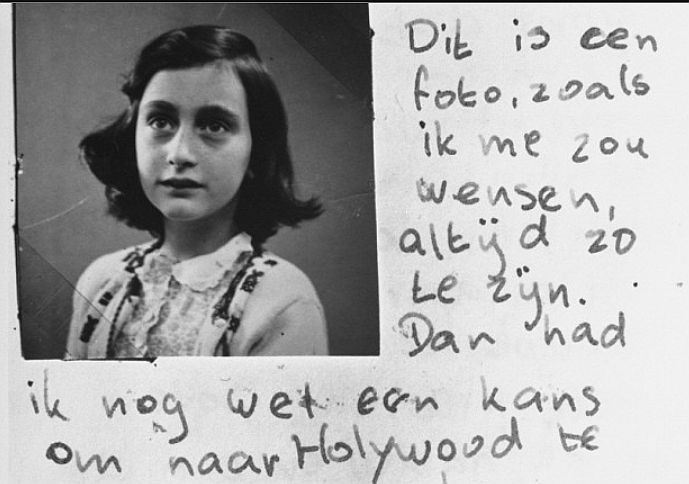 Dit is een
foto, zoals
ik me zou
wensen,
altijd zo
te zijn.
Dan had
ik nog wel een kans
om naar Holywood te